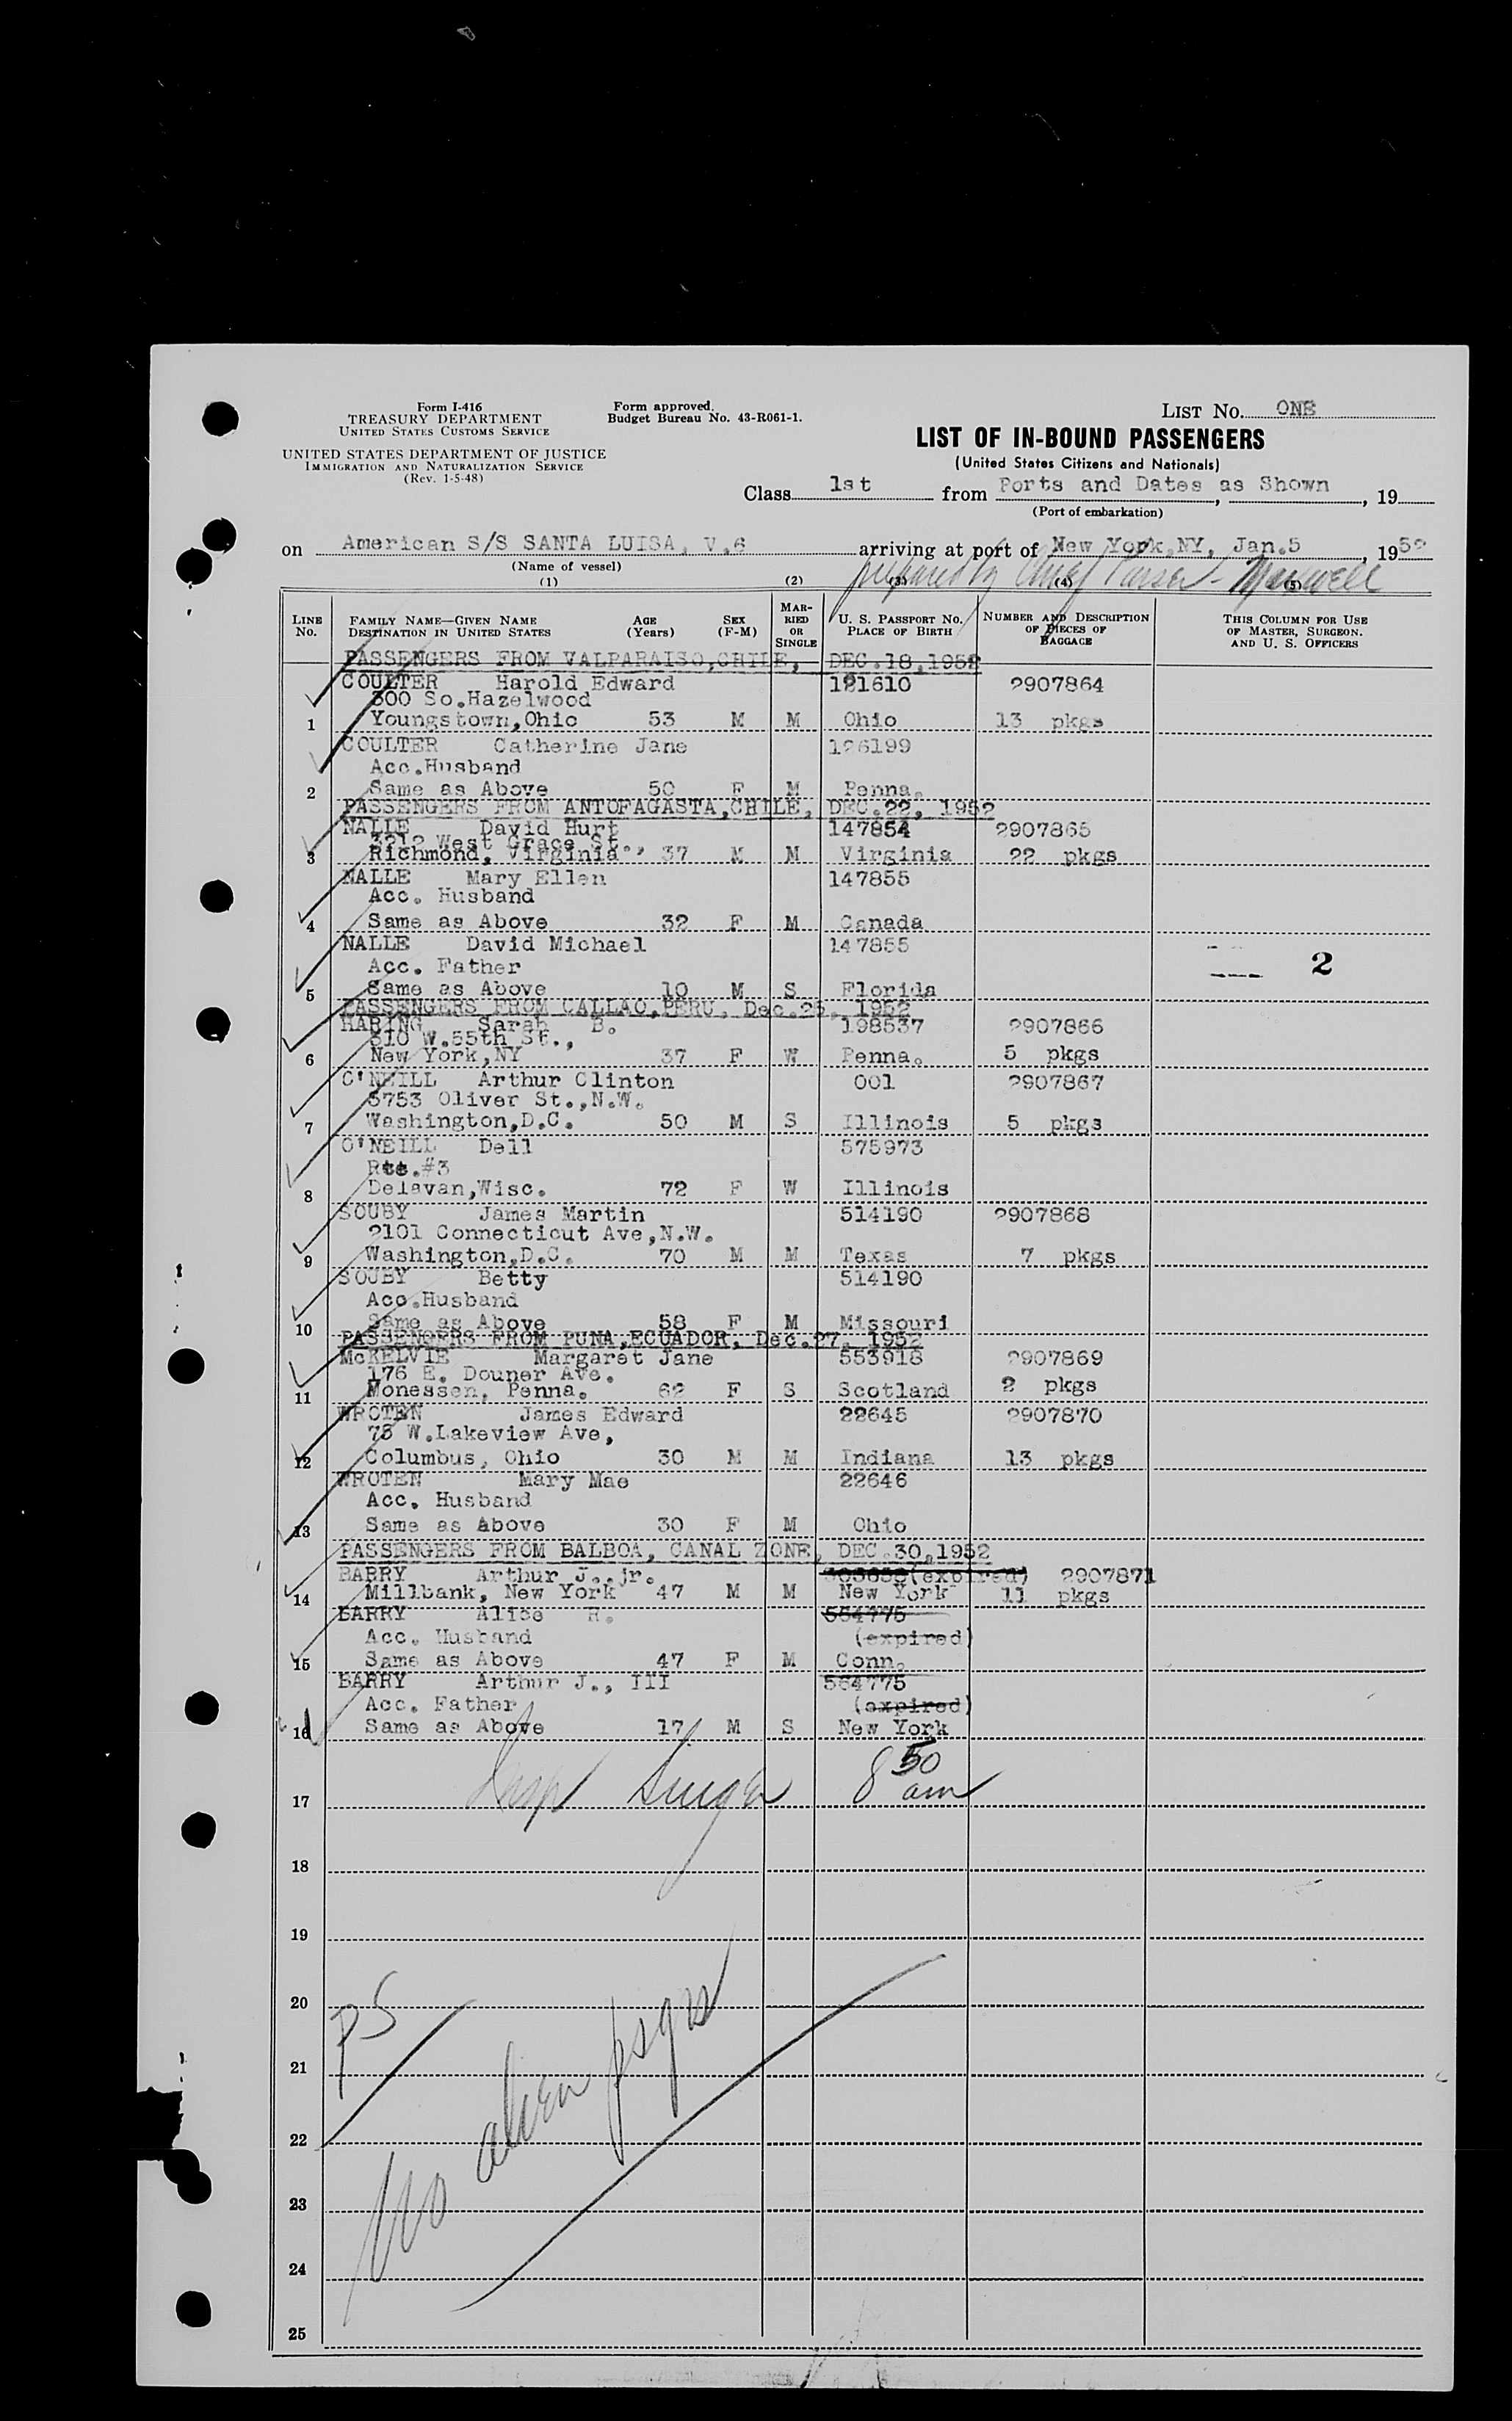 Form I-416
TREASURY DEPARTMENT
UNITED STATES CUSTOMS SERVICE
UNITED STATES DEPARTMENT OF JUSTICE
IMMIGRATION AND NATURALIZATION SERVICE
(Rev. 1-5-48)
Form approved.
Budget Bureau No. 43-R061-1.
LIST No. ONE
LIST OF IN-BOUND PASSENGERS
(United States Citizens and Nationals)
Class 1st from Ports and Dates as Shown, 19
(Port of embarkation)
on American S/S SANTA LUISA, V.6 arriving at port of New York, NY, Jan.5, 195
(Name of vessel)
prepared by Chief Purser - Maxwell
(1) (2) (3) (4) (5)
LINE No. FAMILY NAME—GIVEN NAME DESTINATION IN UNITED STATES AGE (Years) SEX (F-M) MARRIED OR SINGLE U. S. PASSPORT NO. PLACE OF BIRTH NUMBER AND DESCRIPTION OF PIECES OF BAGGAGE THIS COLUMN FOR USE OF MASTER, SURGEON, AND U. S. OFFICERS
PASSENGERS FROM VALPARAISO,CHILE, DEC.18,1952
COULTER Harold Edward 181610 2907864
300 So.Hazelwood
1 Youngstown,Ohio 53 M M Ohio 13 pkgs
COULTER Catherine Jane 126199
Acc.Husband
2 Same as Above 50 F M Penna.
PASSENGERS FROM ANTOFAGASTA,CHILE, DEC.22, 1952
NALLE David Hurt 147854 2907865
3212 West Grace St.,
3 Richmond, Virginia 37 M M Virginia 22 pkgs
NALLE Mary Ellen 147855
Acc. Husband
4 Same as Above 32 F M Canada
NALLE David Michael 147855
Acc. Father 2
5 Same as Above 10 M S Florida
PASSENGERS FROM CALLAO,PERU, Dec.25, 1952
HARING Sarah B. 198537 2907866
310 W.55th St.,
6 New York,NY 37 F W Penna. 5 pkgs
O'NEILL Arthur Clinton 001 2907867
3753 Oliver St.,N.W.
7 Washington,D.C. 50 M S Illinois 5 pkgs
O'NEILL Dell 575973
Rte.#3
8 Delavan,Wisc. 72 F W Illinois
SOUBY James Martin 514190 2907868
2101 Connecticut Ave,N.W.
9 Washington,D.C. 70 M M Texas 7 pkgs
SOUBY Betty 514190
Acc.Husband
10 Same as Above 58 F M Missouri
PASSENGERS FROM PUNA,ECUADOR, Dec.27, 1952
McKELVIE Margaret Jane 553918 2907869
176 E. Douner Ave.
11 Monessen, Penna. 62 F S Scotland 2 pkgs
WROTEN James Edward 22645 2907870
75 W.Lakeview Ave,
12 Columbus, Ohio 30 M M Indiana 13 pkgs
WROTEN Mary Mae 22646
Acc. Husband
13 Same as Above 30 F M Ohio
PASSENGERS FROM BALBOA, CANAL ZONE, DEC.30,1952
BARRY Arthur J.,jr. (expired) 2907871
14 Millbank, New York 47 M M New York 11 pkgs
BARRY Alice R. 564775
Acc. Husband (expired)
15 Same as Above 47 F M Conn.
BARRY Arthur J., III 564775
Acc. Father (expired)
16 Same as Above 17 M S New York
Insp Singer 8 50 am
17
18
19
20
PS
21
22
No alien psgrs
23
24
25